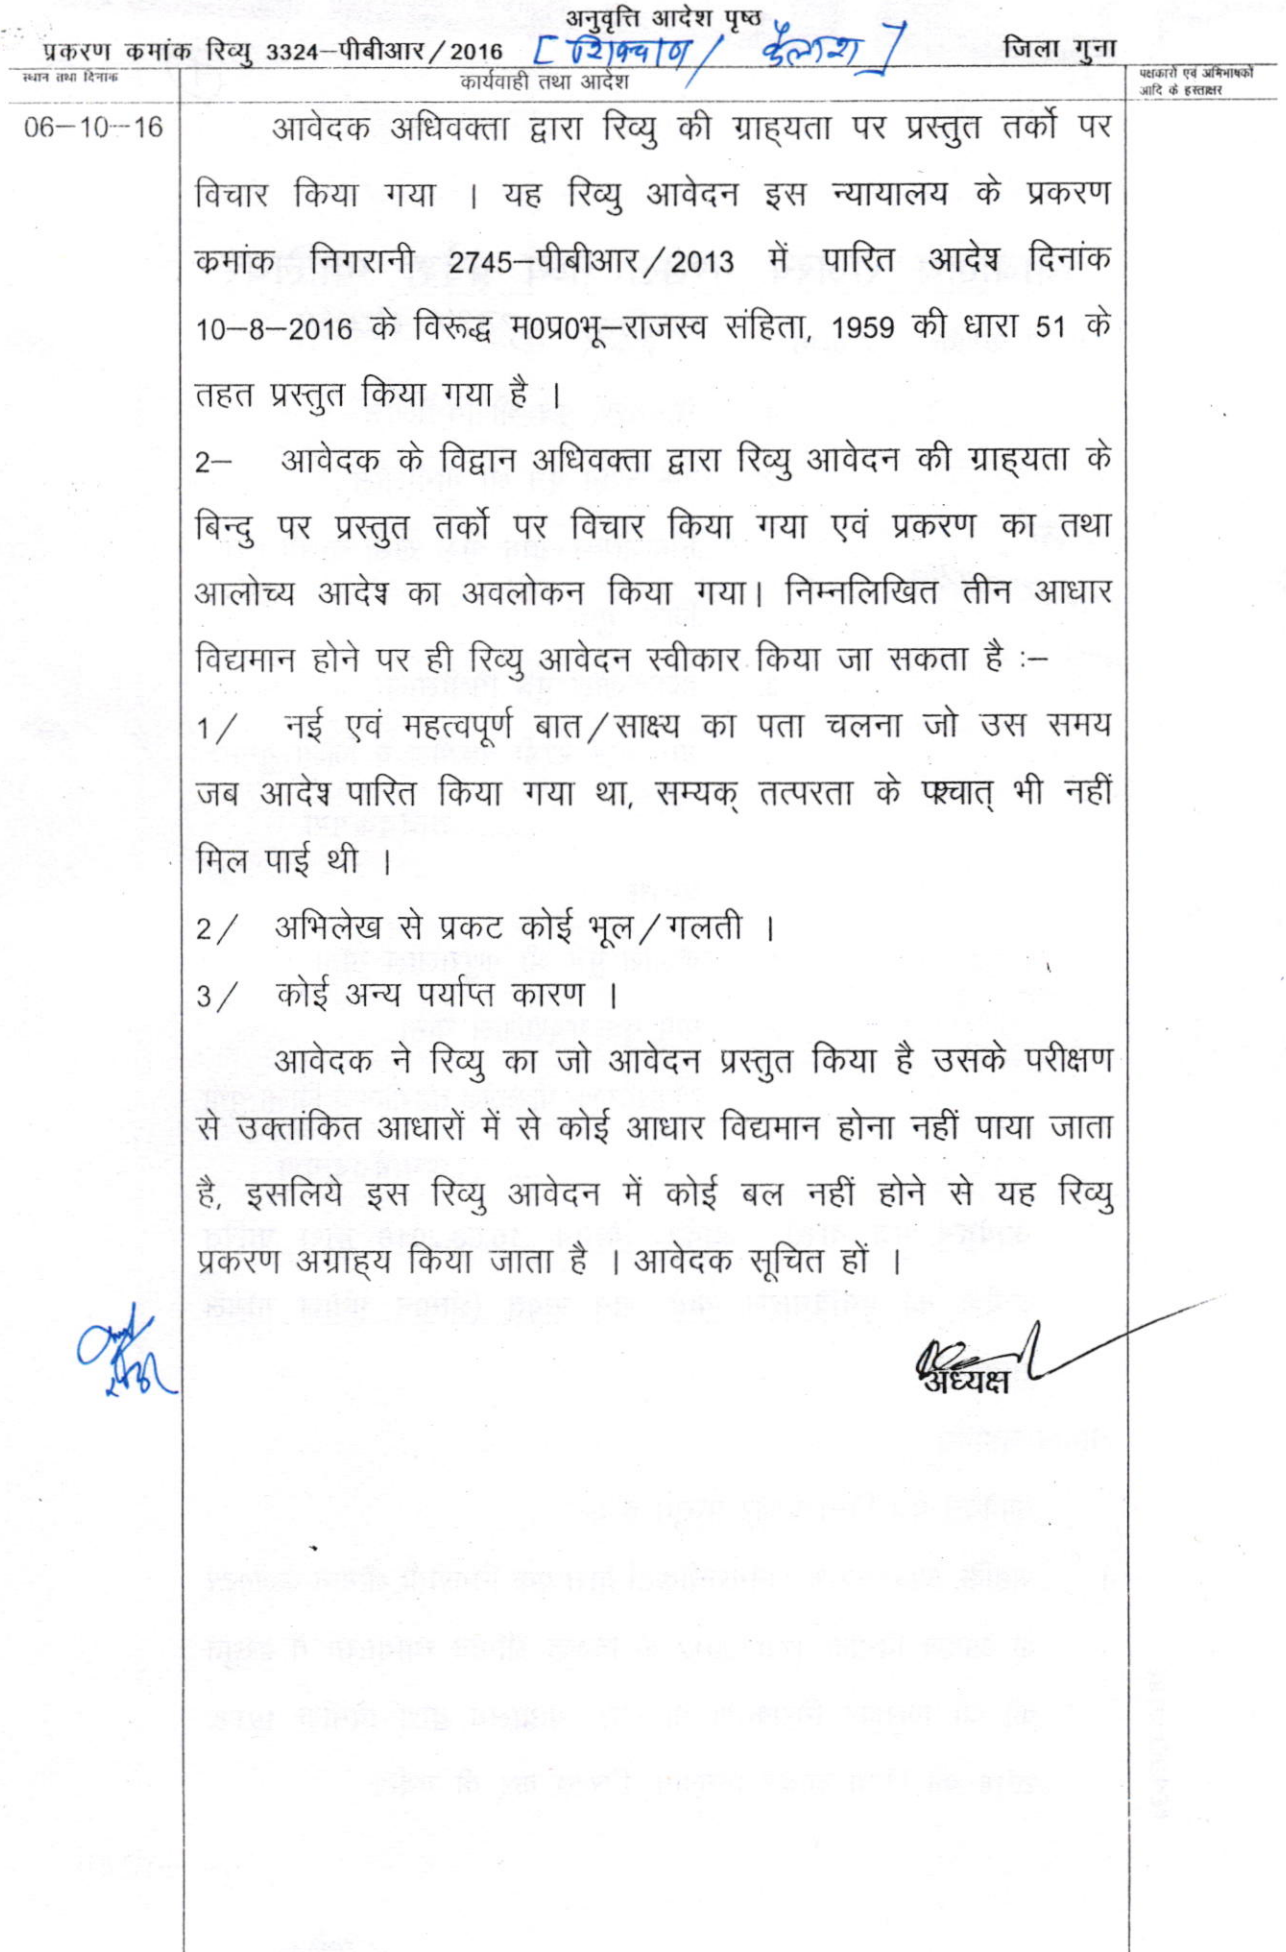 अनुवृत्ति आदेश पृष्ठ
प्रकरण कमांक रिव्यु 3324–पीबीआर/2016 [ / कैलाश ] जिला गुना
स्थान तथा दिनांक कार्यवाही तथा आदेश पक्षकारों एवं अभिभाषकों
आदि के हस्ताक्षर
06–10–16 आवेदक अधिवक्ता द्वारा रिव्यु की ग्राह्यता पर प्रस्तुत तर्को पर
विचार किया गया । यह रिव्यु आवेदन इस न्यायालय के प्रकरण
कमांक निगरानी 2745–पीबीआर/2013 में पारित आदेश दिनांक
10–8–2016 के विरूद्ध म0प्र0भू–राजस्व संहिता, 1959 की धारा 51 के
तहत प्रस्तुत किया गया है ।
2– आवेदक के विद्वान अधिवक्ता द्वारा रिव्यु आवेदन की ग्राह्यता के
बिन्दु पर प्रस्तुत तर्को पर विचार किया गया एवं प्रकरण का तथा
आलोच्य आदेश का अवलोकन किया गया। निम्नलिखित तीन आधार
विद्यमान होने पर ही रिव्यु आवेदन स्वीकार किया जा सकता है :–
1/ नई एवं महत्वपूर्ण बात/साक्ष्य का पता चलना जो उस समय
जब आदेश पारित किया गया था, सम्यक् तत्परता के पश्चात् भी नहीं
मिल पाई थी ।
2/ अभिलेख से प्रकट कोई भूल/गलती ।
3/ कोई अन्य पर्याप्त कारण ।
आवेदक ने रिव्यु का जो आवेदन प्रस्तुत किया है उसके परीक्षण
से उक्तांकित आधारों में से कोई आधार विद्यमान होना नहीं पाया जाता
है, इसलिये इस रिव्यु आवेदन में कोई बल नहीं होने से यह रिव्यु
प्रकरण अग्राह्य किया जाता है । आवेदक सूचित हों ।
अध्यक्ष